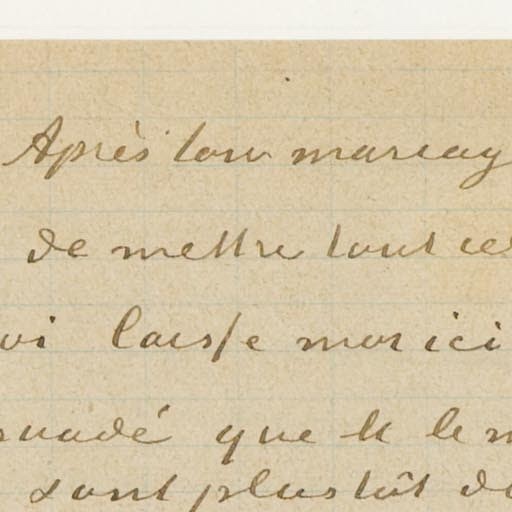 Après ton mariag
de mettre tout ce
oi laisse moi ici
suadé que
sont plustôt d